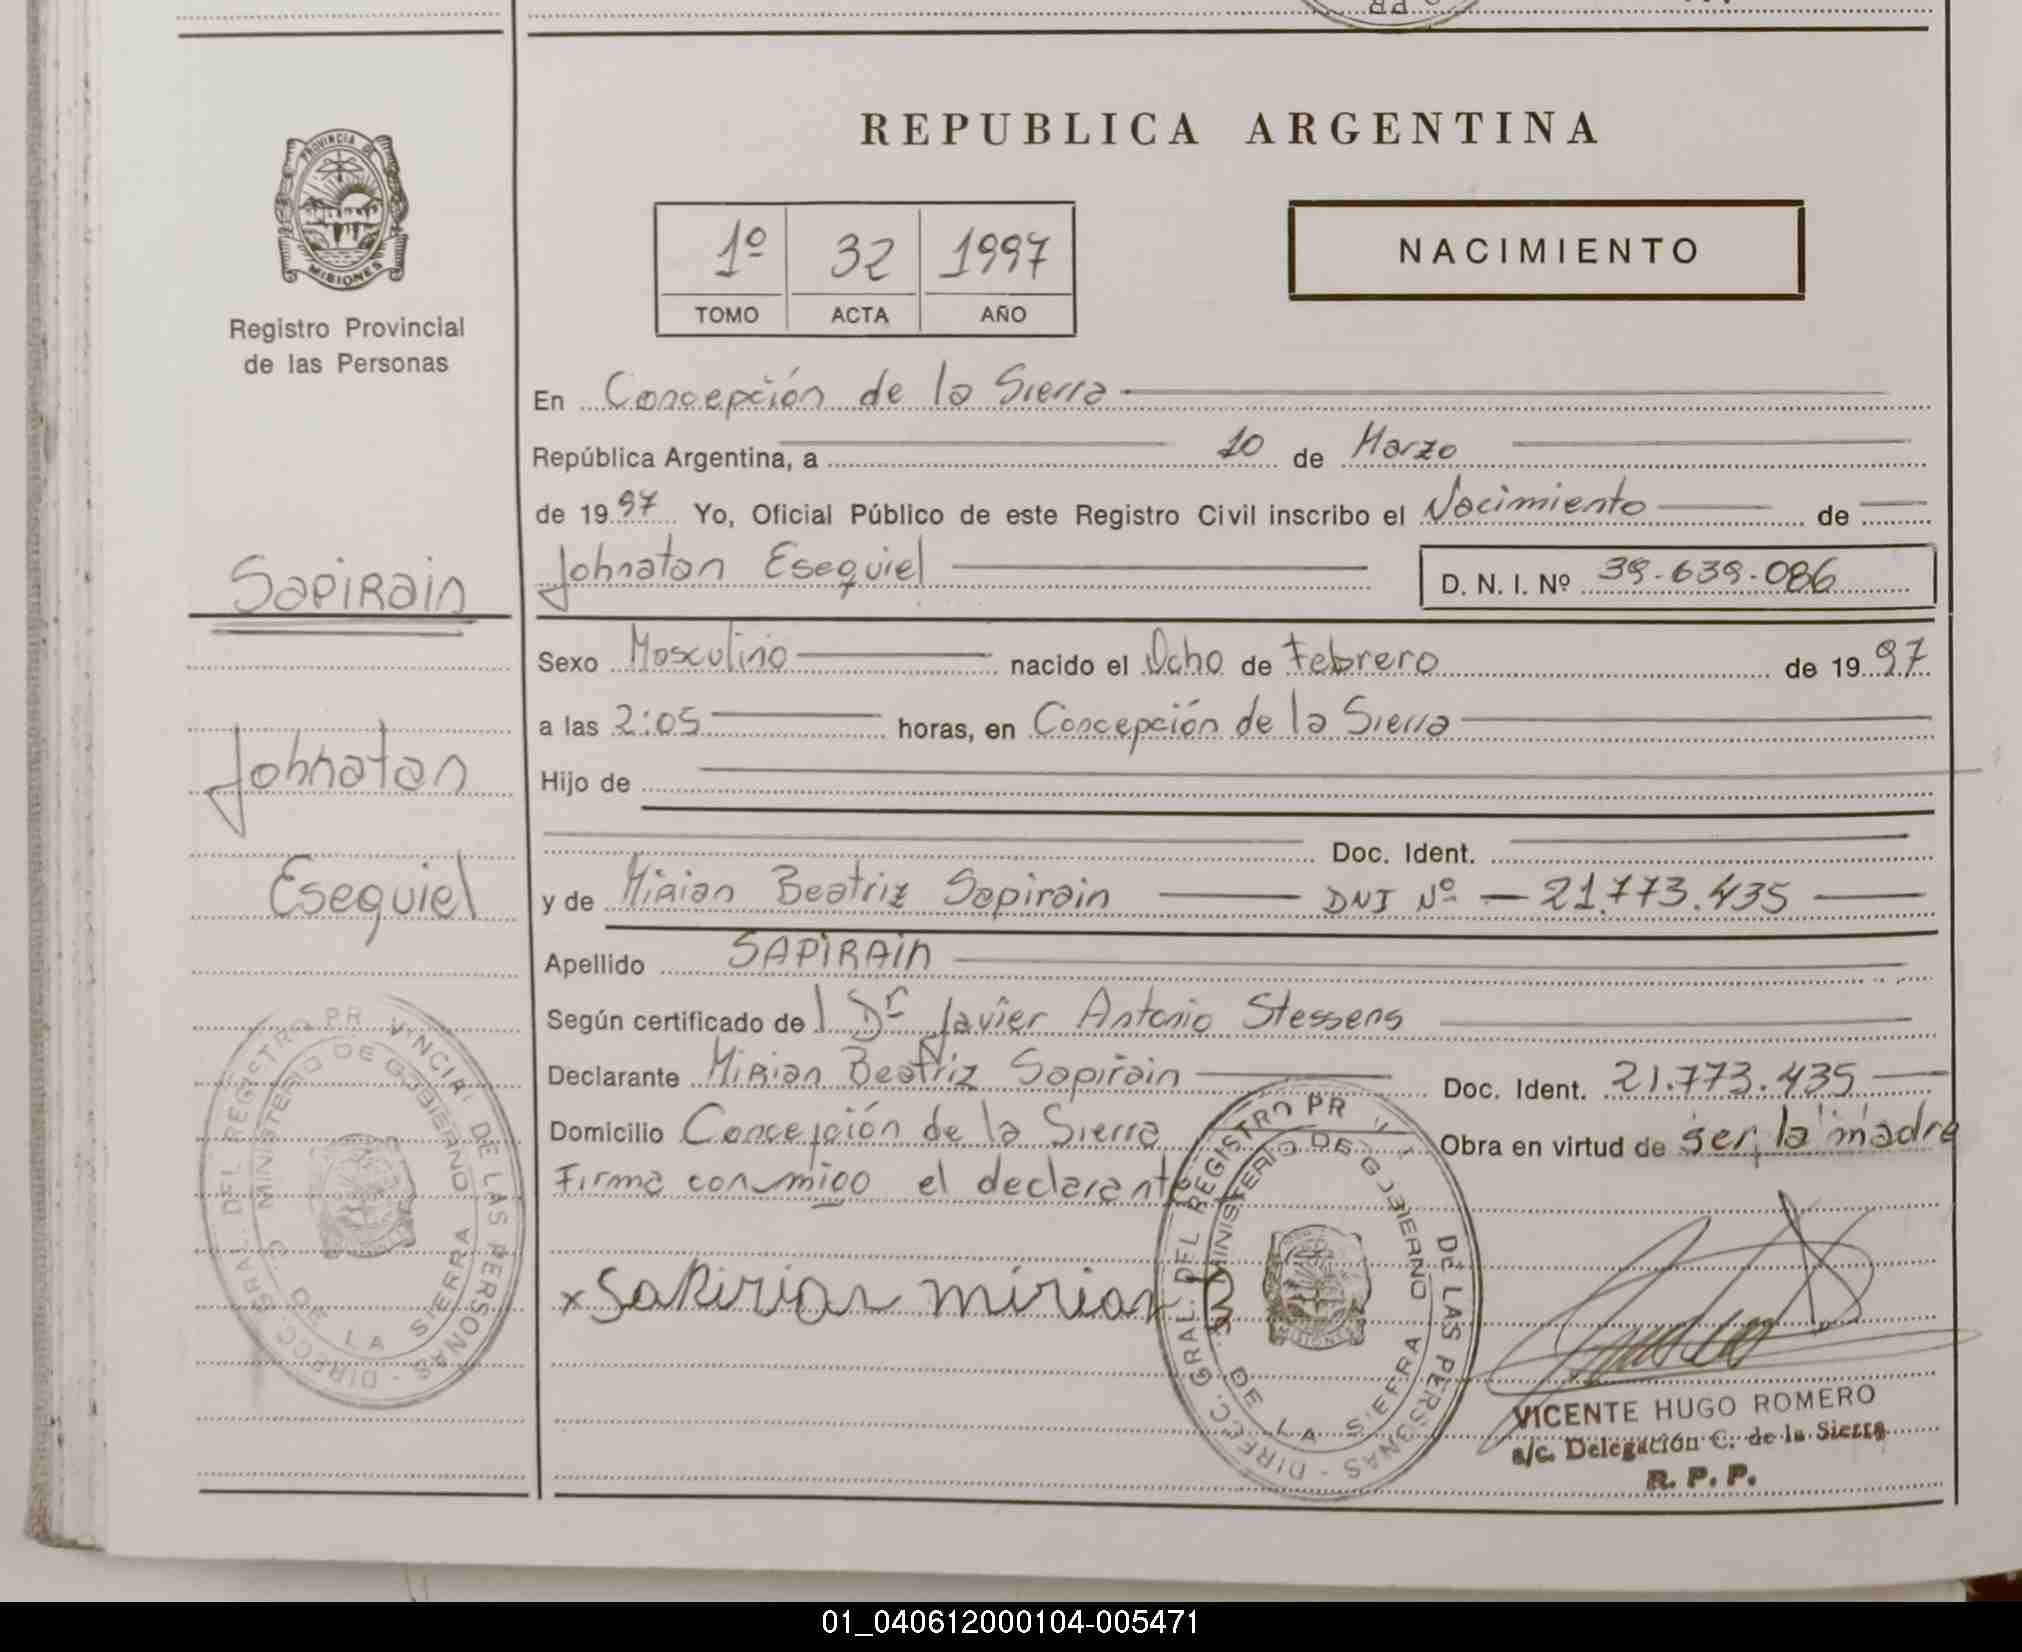 REPUBLICA ARGENTINA
PROVINCIA DE
MISIONES
Registro Provincial
de las Personas
1º 32 1997
TOMO ACTA AÑO
NACIMIENTO
En Concepción de la Sierra
República Argentina, a 10 de Marzo
de 1997 Yo, Oficial Público de este Registro Civil inscribo el Nacimiento de
Sapirain
Johnatan Esequiel D. N. I. Nº 39.639.086
Sexo Masculino nacido el Ocho de Febrero de 1997
a las 2:05 horas, en Concepción de la Sierra
Johnatan
Hijo de
Doc. Ident.
Esequiel
y de Mirian Beatriz Sapirain DNI Nº 21.773.435
Apellido SAPIRAIN
Según certificado del Dr Javier Antonio Stessens
Declarante Mirian Beatriz Sapirain Doc. Ident. 21.773.435
Domicilio Concepción de la Sierra Obra en virtud de ser la madre
Firma conmigo el declarante
x Sapirian mirian B
DIRECC. GRAL. DEL REGISTRO PR VINCIAL DE LAS PERSONAS
MINISTERIO DE GOBIERNO
DE LA SIERRA
DIRECC. GRAL. DEL REGISTRO PR DE LAS PERSONAS
MINISTERIO DE GOBIERNO
DE LA SIERRA
MISIONES
VICENTE HUGO ROMERO
a/c. Delegación C. de la Sierra
R. P. P.
01_040612000104-005471